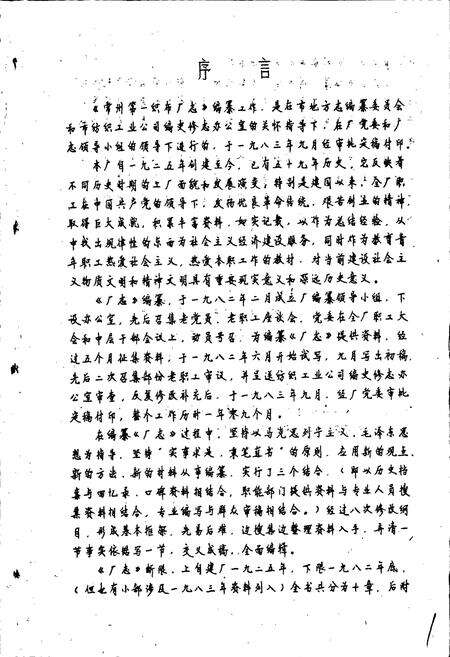 序言
《常州第一织布厂志》编纂工作，是在市地方志编纂委员会
和市纺织工业公司编史修志办公室的关怀指导下，在厂党委和厂
志领导小组的领导下进行的，于一九八三年九月经审批定稿付印。
本厂自一九二五年创建至今，已有五十九年历史，它反映着
不同历史时期的工厂面貌和发展演变，特别是建国以来，全厂职
工在中国共产党的领导下，发扬优良革命传统，艰苦创业的精神，
取得巨大成就，积累丰富资料，如实记载，以作为总结经验，从
中找出规律性的东西为社会主义经济建设服务，同时作为教育青
年职工热爱社会主义，热爱本职工作的教材，对当前建设社会主
义物质文明和精神文明具有重要现实意义和深远历史意义。
《厂志》编纂，于一九八二年二月成立厂编纂领导小组，下
设办公室，先后召集老党员、老职工座谈会，党委在全厂职工大
会和中层干部会议上，动员号召，为编纂《厂志》提供资料，经
过五个月征集资料，于一九八二年六月开始试写，九月写出初稿，
先后二次召集部份老职工审议，并呈送纺织工业公司编史修志办
公室审查，反复修改补充后，于一九八三年九月，经厂党委审批
定稿付印，整个工作历时一年零九个月。
在编纂《厂志》过程中，坚持以马克思列宁主义、毛泽东思
想为指导，坚持“实事求是，秉笔直书”的原则，应用新的观点、
新的方法、新的材料从事编纂，实行了三个结合，（即以历史档
案与回忆录、口碑资料相结合，职能部门提供资料与专业人员搜
集资料相结合，专业编写与群众审稿相结合。）经过八次修改纲
目，形成基本框架，先易后难，边搜集边整理资料入手，弄清一
节事实依据写一节，交叉成稿，全面编辑。
《厂志》断限，上自建厂一九二五年，下限一九八二年底，
（但也有小部涉及一九八三年资料列入）全书共分为十章，后附